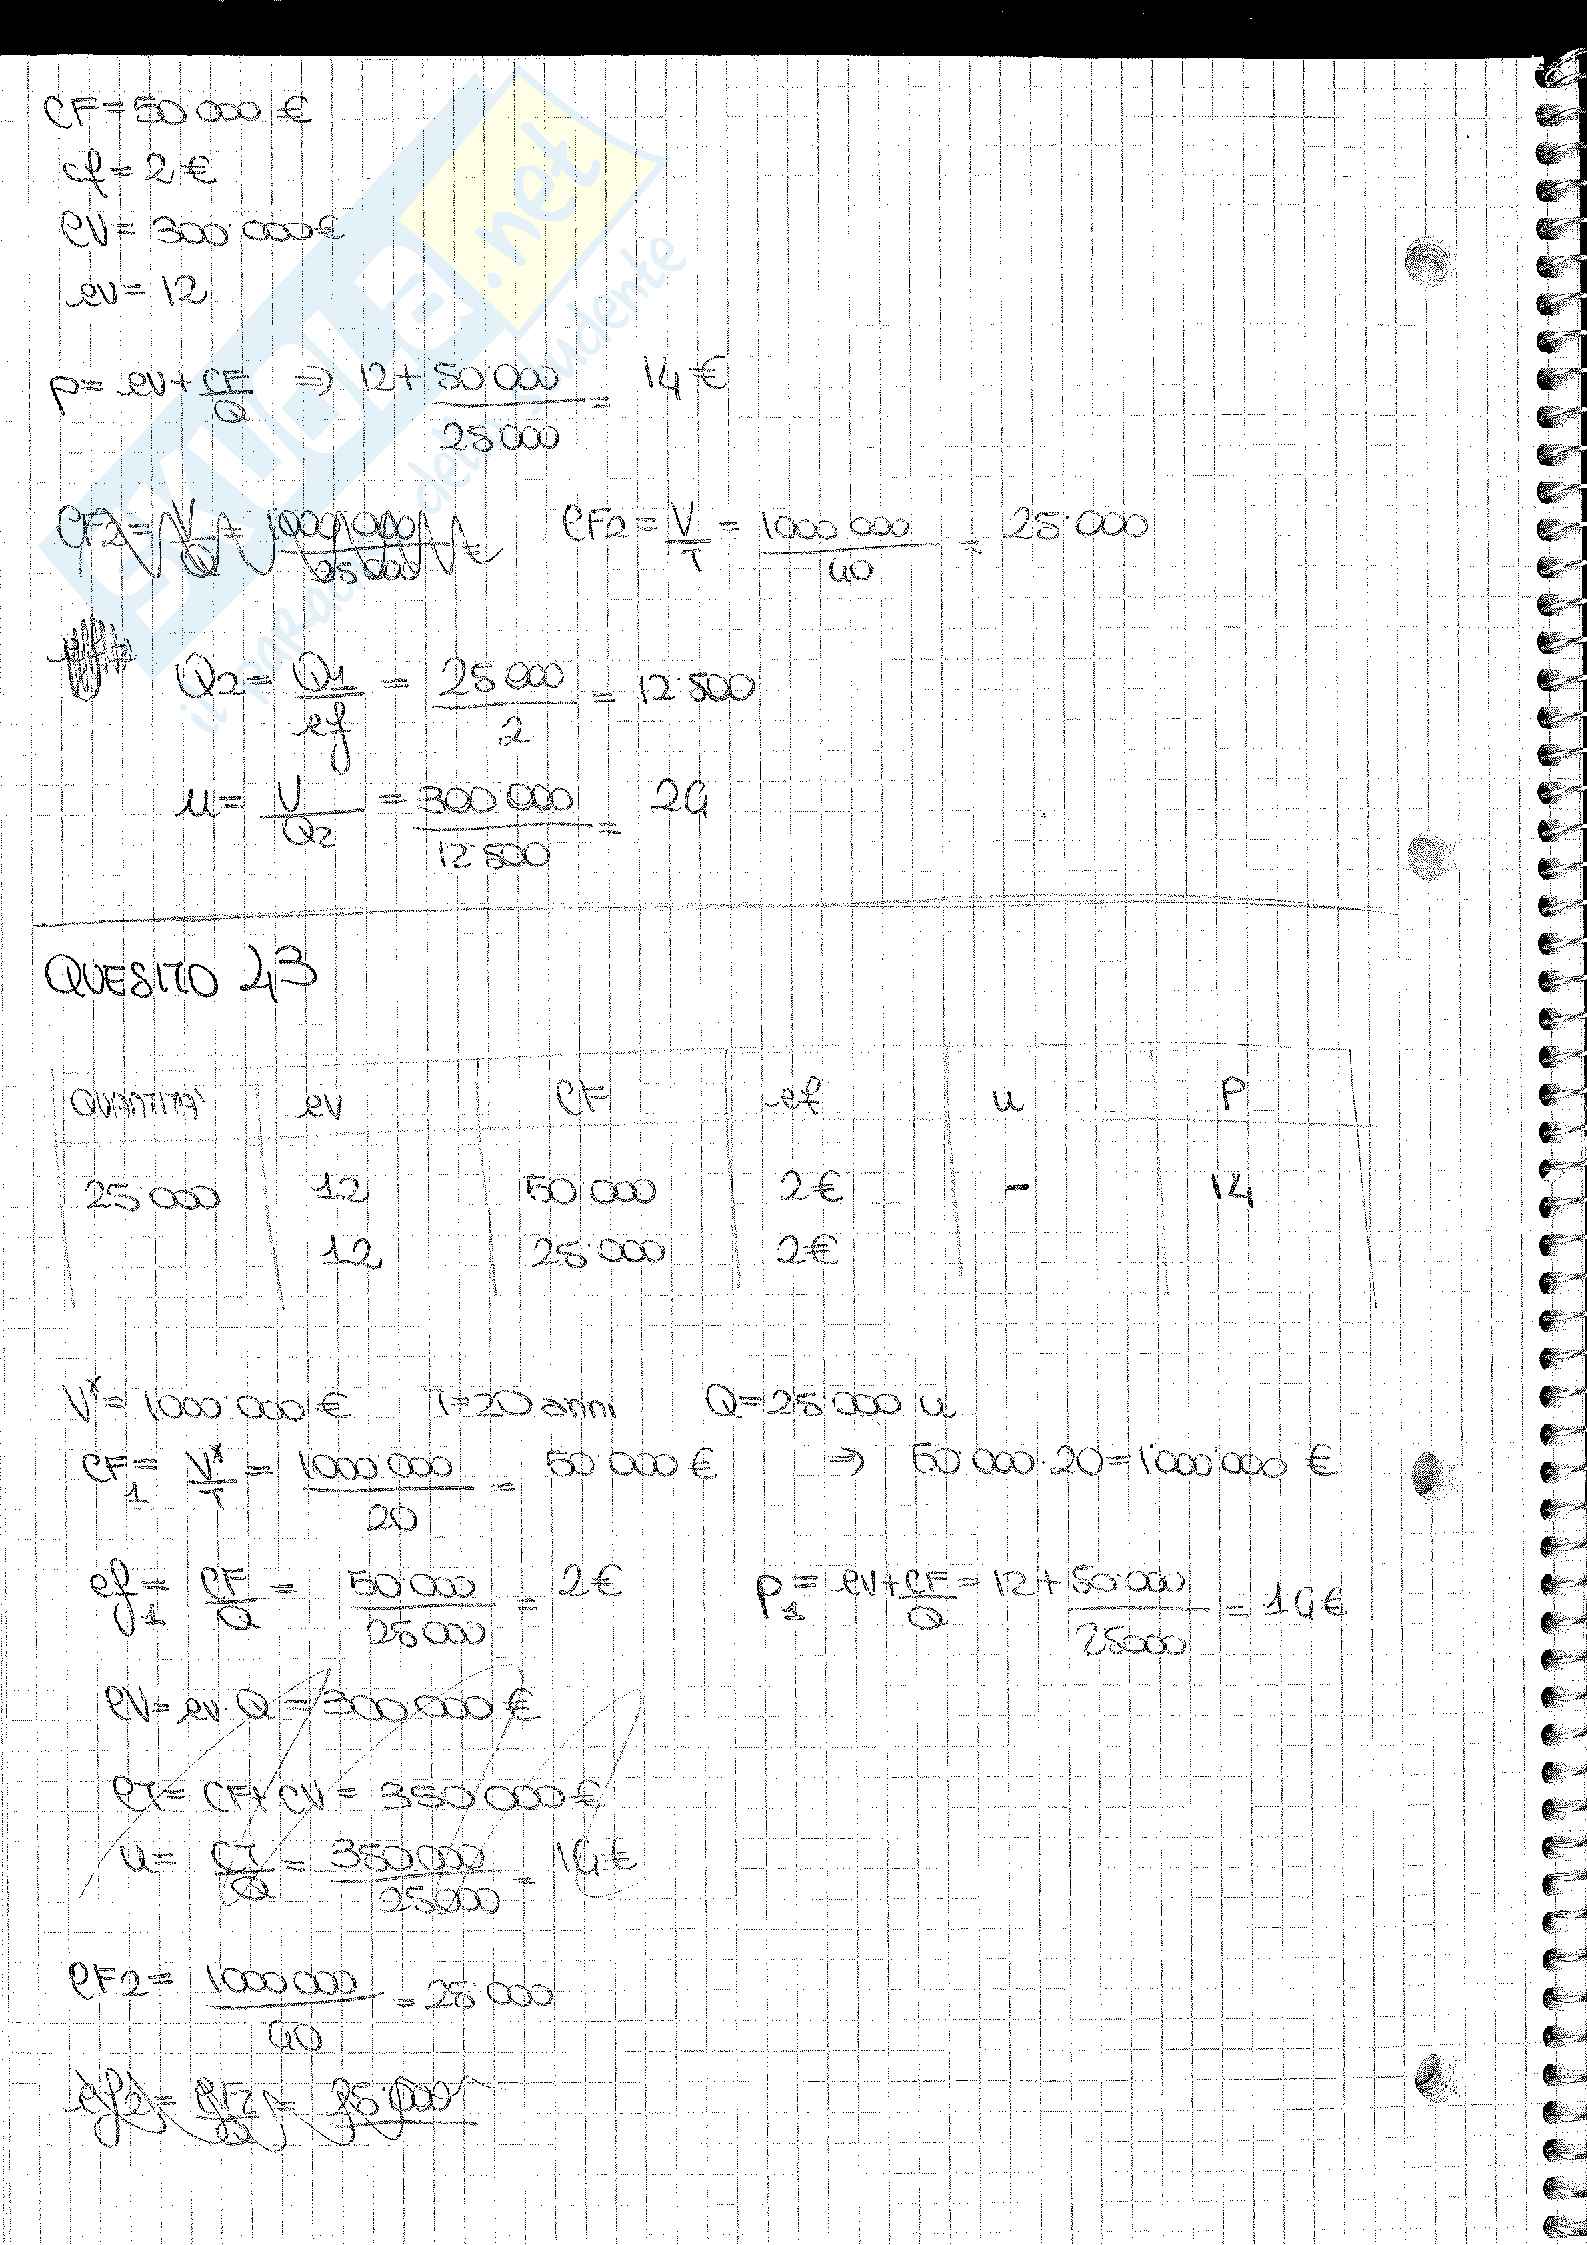 CF = 50 000 €
cf = 2 €
CV = 300.000 €
cv = 12
p = cv + CF/Q ⇒ 12 + 50 000/25 000 = 14 €
CF2 = V/Q = 1000 000/25 000 = CF2 = V/T = 1000 000/40 = 25.000
Q2 = Q1/cf = 25 000/2 = 12.500
u = V/Q2 = 300 000/12 500 = 24
QUESITO 43
QUANTITA' cv CF cf u P
25.000 12 50 000 2 € - 14
12 25.000 2 €
V* = 1000 000 € T = 20 anni Q = 25.000 u
CF1 = V*/T = 1000 000/20 = 50 000 € ⇒ 50 000 . 20 = 1000 000 €
cf1 = CF/Q = 50 000/25 000 = 2 € P1 = cv + CF/Q = 12 + 50 000/25000 = 14 €
CV = cv . Q = 300 000 €
CT = CF + CV = 350 000 €
u = CT/Q = 350 000/25000 = 14 €
CF2 = 1000 000/40 = 25 000
cf2 = CF2/Q = 25.000
.net